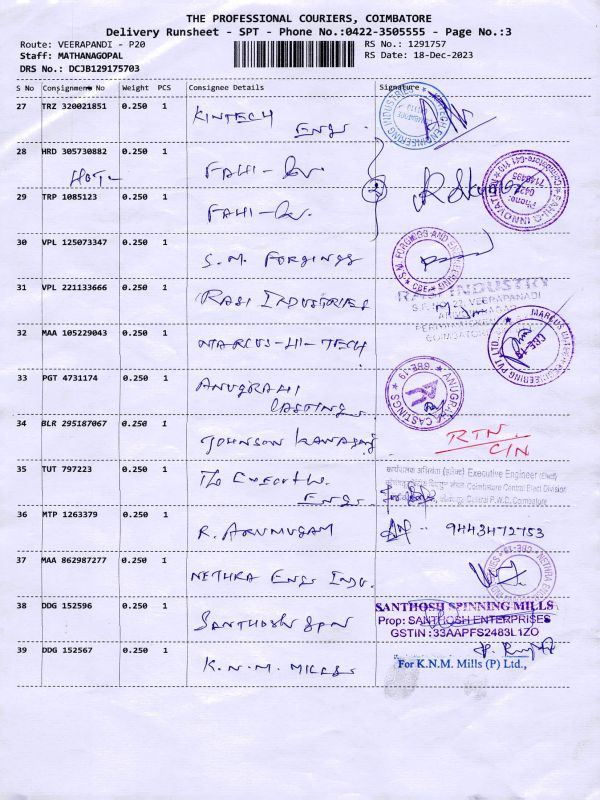 THE PROFESSIONAL COURIERS, COIMBATORE
Delivery Runsheet - SPT - Phone No.:0422-3505555 - Page No.:3
Route: VEERAPANDI - P20
RS No.: 1291757
Staff: MATHANAGOPAL
RS Date: 18-Dec-2023
DRS No.: DCJB129175703
S No Consignment No Weight PCS Consignee Details Signature
27 TRZ 320021851 0.250 1 KINTECH
ENGS
28 HRD 305730882 0.250 1 FAHI-
29 TRP 1085123 0.250 1 FAHI-
2
30 VPL 125073347 0.250 1 S.M. FORGINGS
S.M. FORGINGS AND
CBE
31 VPL 221133666 0.250 1 RASI INDUSTRIES
RASI INDUSTRY
VEERAPANADI
COIMBATORE
32 MAA 105229043 0.250 1 MARCUS-HI-TECH
33 PGT 4731174 0.250 1 ANUGRAHI
CASTINGS
ANUGRAHA CASTINGS
CBE-19
34 BLR 295187067 0.250 1 JOHNSON
RTN
C/N
35 TUT 797223 0.250 1 The
ENGR
Executive Engineer (Elect)
Coimbatore Central Elect Division
Central P.W.D. Coimbatore
36 MTP 1263379 0.250 1 R. ARUMUGAM
9443472753
37 MAA 862987277 0.250 1 NETHRA ENGG INDU.
38 DDG 152596 0.250 1 SANTHOSH SPN
SANTHOSH SPINNING MILLS
Prop: SANTHOSH ENTERPRISES
GSTIN :33AAPFS2483L1ZO
39 DDG 152567 0.250 1 K.N.M. MILLS
For K.N.M. Mills (P) Ltd.,